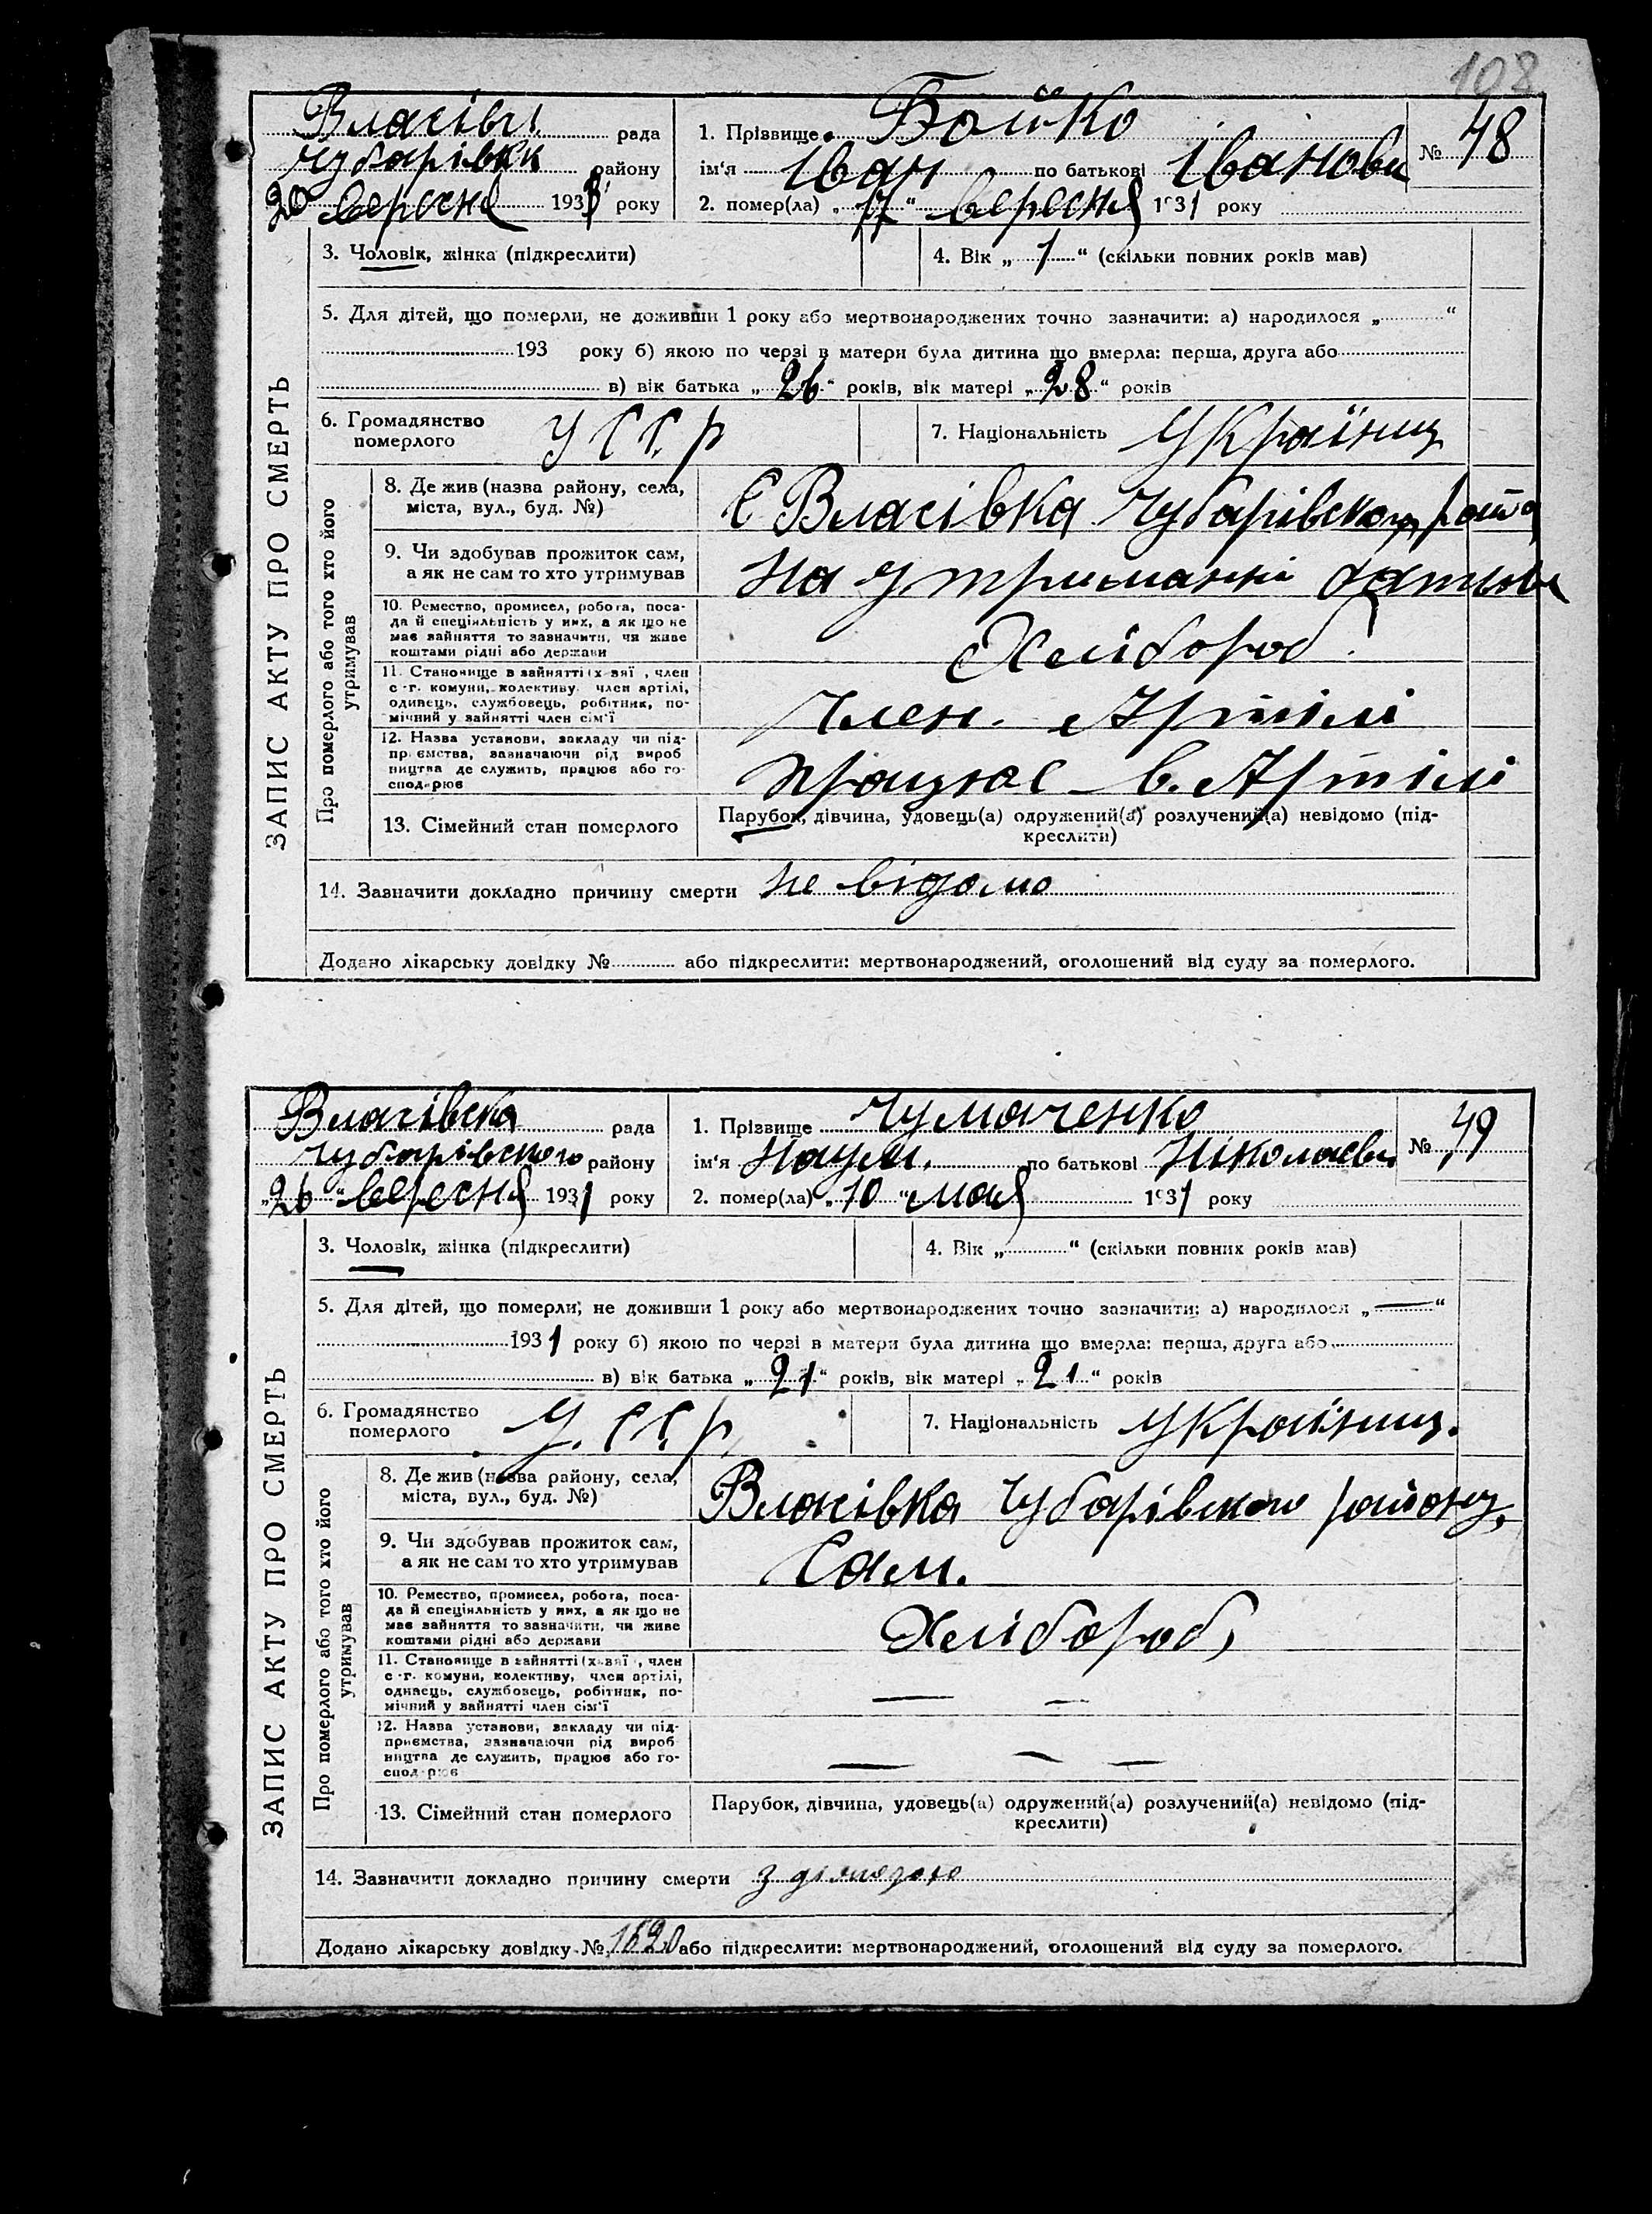 108
Власівс рада
Чубарівськ району
20 вересня 1931 року
1. Прізвище Бойко
№ 48
ім'я Іван по батькові Іванови
2. помер(ла) „17“ вересня 1931 року
ЗАПИС АКТУ ПРО СМЕРТЬ
3. Чоловік, жінка (підкреслити)
4. Вік „1“ (скільки повних років мав)
5. Для дітей, що померли, не доживши 1 року або мертвонароджених точно зазначити: а) народилося „ “
193 року б) якою по черзі в матери була дитина що вмерла: перша, друга або
в) вік батька „26“ років, вік матері „28“ років
6. Громадянство померлого УССР
7. Національність Українц
Про померлого або того хто його утримував
8. Де жив (назва району, села,
міста, вул., буд. №)
С Власівка Чубарівського
9. Чи здобував прожиток сам,
а як не сам то хто утримував
На утриманні батьків
10. Ремество, промисел, робота, поса-
да й спеціяльність у них, а як що не
має зайняття то зазначити, чи живе
коштами рідні або держави
Хлібороб
11. Становище в зайнятті (х-зяї , член
с.-г. комуни, колективу, член артілі,
одинець, службовець, робітник, по-
мічний у зайнятті член сім'ї
Член. Артілі
12. Назва установи, закладу чи під-
приємства, зазначаючи рід вироб
ництва де служить, працює або го-
сподарює
працює в. Артілі
13. Сімейний стан померлого
Парубок, дівчина, удовець(а) одружений(а) розлучений(а) невідомо (під-
креслити)
14. Зазначити докладно причину смерти не відомо
Додано лікарську довідку № або підкреслити: мертвонароджений, оголошений від суду за померлого.
Власівська рада
Чубарівського району
„26“ вересня 1931 року
1. Прізвище Чумаченко
№ 49
ім'я Наум. по батькові Ніколаєви
2. помер(ла) „10“ мая 1931 року
ЗАПИС АКТУ ПРО СМЕРТЬ
3. Чоловік, жінка (підкреслити)
4. Вік „ “ (скільки повних років мав)
5. Для дітей, що померли, не доживши 1 року або мертвонароджених точно зазначити: а) народилося „—“
1931 року б) якою по черзі в матери була дитина що вмерла: перша, друга або
в) вік батька „21“ років, вік матері „21“ років
6. Громадянство померлого У.ССР
7. Національність Українц.
Про померлого або того хто його утримував
8. Де жив (назва району, села,
міста, вул., буд. №)
Власівка Чубарівського району,
9. Чи здобував прожиток сам,
а як не сам то хто утримував
Сам.
10. Ремество, промисел, робота, поса-
да й спеціяльність у них, а як що не
має зайняття то зазначити, чи живе
коштами рідні або держави
Хлібороб
11. Становище в зайнятті (х-зяї , член
с.-г. комуни, колективу, член артілі,
одинець, службовець, робітник, по-
мічний у зайнятті член сім'ї
— —
12. Назва установи, закладу чи під-
приємства, зазначаючи рід вироб
ництва де служить, працює або го-
сподарює
— — —
13. Сімейний стан померлого
Парубок, дівчина, удовець(а) одружений(а) розлучений(а) невідомо (під-
креслити)
14. Зазначити докладно причину смерти
Додано лікарську довідку № 1620 або підкреслити: мертвонароджений, оголошений від суду за померлого.